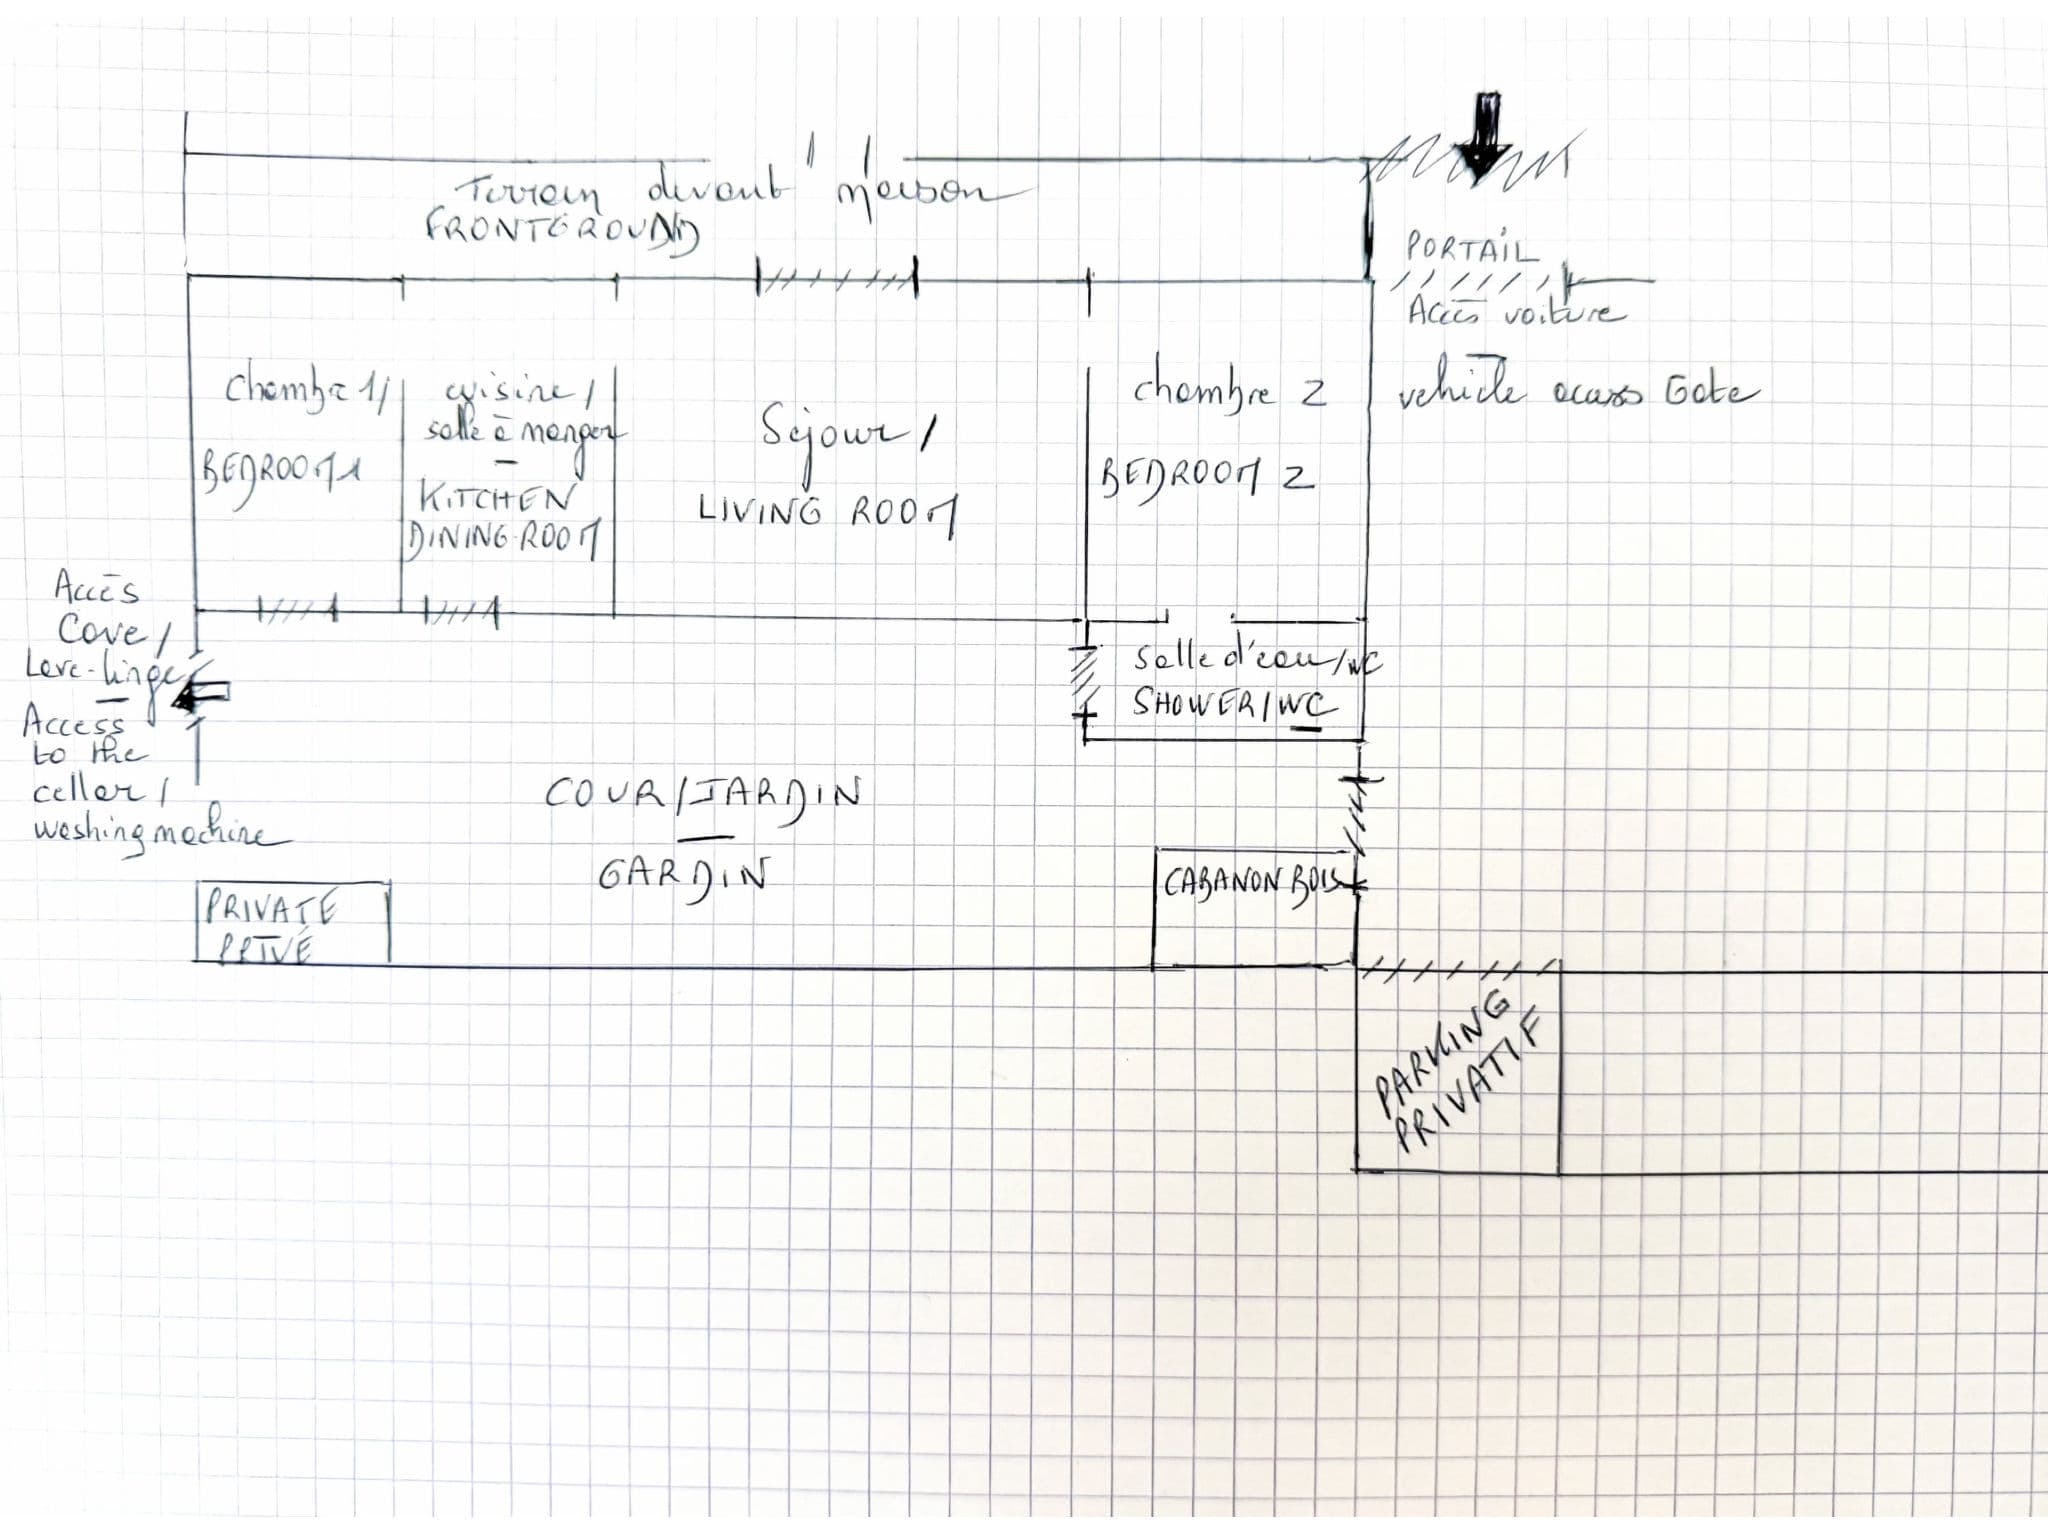 Terrain devant maison
FRONTGROUND
PORTAIL
Accès voiture
vehicle access Gate
Chambre 1/
BEDROOM 1
cuisine/
salle à manger
KITCHEN
DINING-ROOM
Séjour/
LIVING ROOM
chambre 2
BEDROOM 2
Accès
Cave/
Lave-linge
Access
to the
cellar/
washing machine
salle d'eau/WC
SHOWER/WC
COUR/JARDIN
GARDIN
CABANON BOIS
PRIVATE
PRIVÉ
PARKING
PRIVATIF